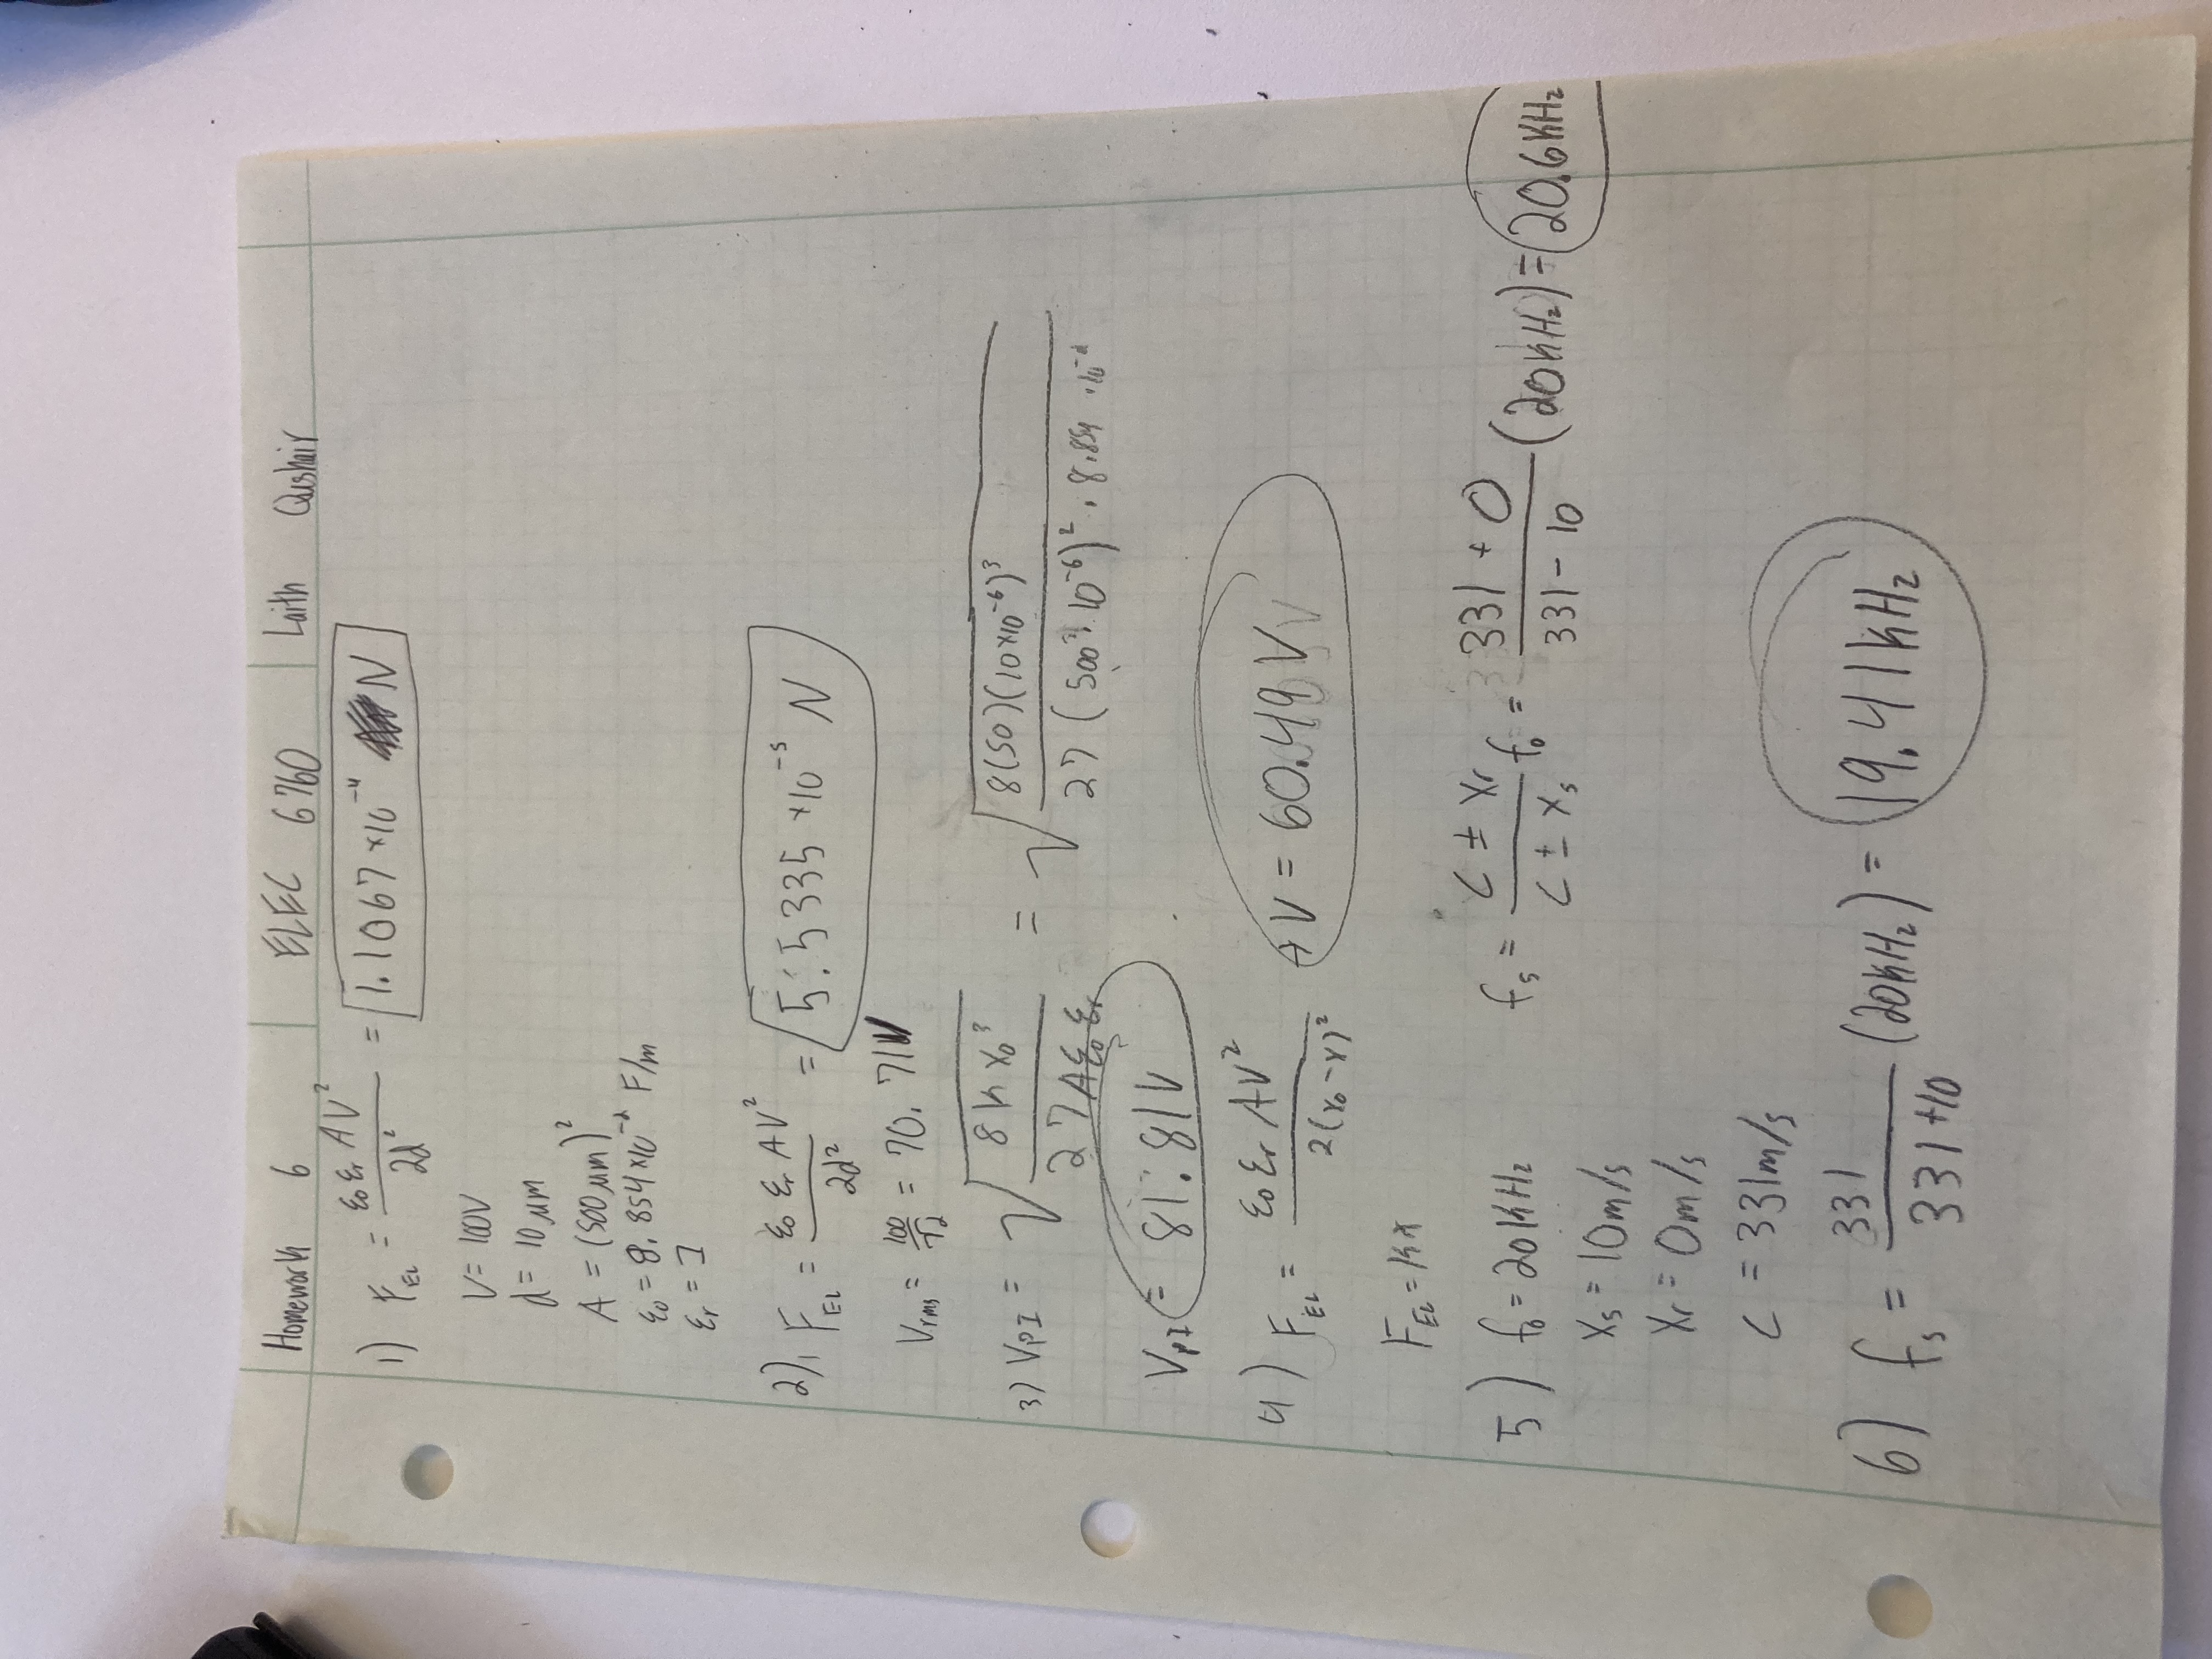 Homework 6 ELEC 6760 Laith Qushair
1) F_EL = ε₀ εr AV² / 2d² = 1.1067 ×10⁻⁴ N
V = 100V
d = 10 μm
A = (500 μm)²
ε₀ = 8.854×10⁻² F/m
εr = 1
2) F_EL = ε₀ εr AV² / 2d² = 5.5335 ×10⁻⁵ N
Vrms = 100/√2 = 70.71V
3) V_PI = √(8 k x₀³ / 27 A ε₀ εr) = √(8(50)(10×10⁻⁶)³ / 27 (500·10⁻⁶)² · 8.854 ·10⁻²)
V_PI = 81.81V
4) F_EL = ε₀ εr AV² / 2(x₀-x)² → V = 60.49 V
F_EL = kx
5) f₀ = 20kHz fs = (c ± xr / c ± xs) f₀ = (331 + 0 / 331 - 10) (20kHz) = 20.6kHz
xs = 10m/s
xr = 0m/s
c = 331m/s
6) fs = (331 / 331 +10) (20kHz) = 19.41kHz